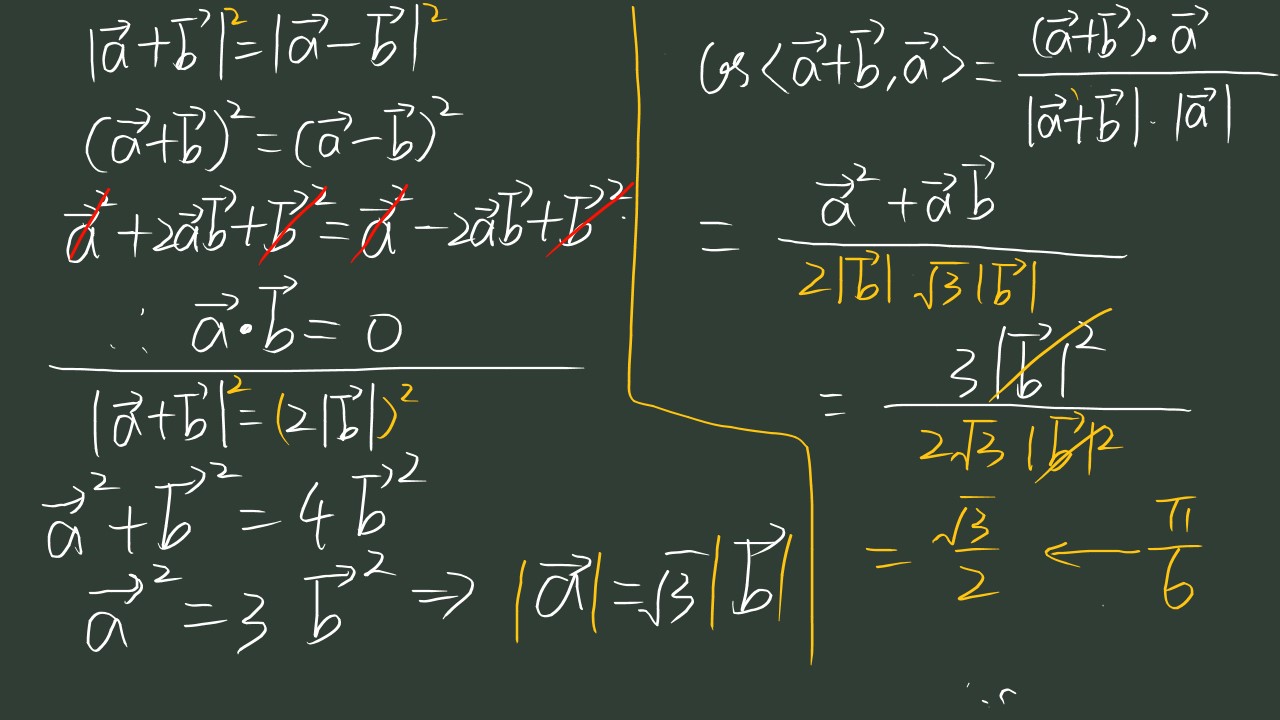 |a⃗+b⃗|²=|a⃗-b⃗|²
(a⃗+b⃗)²=(a⃗-b⃗)²
a⃗²+2a⃗b⃗+b⃗²=a⃗²-2a⃗b⃗+b⃗²
∴ a⃗·b⃗=0
|a⃗+b⃗|²=(2|b⃗|)²
a⃗²+b⃗²=4b⃗²
a⃗²=3b⃗² ⇒ |a⃗|=√3|b⃗|
cos<a⃗+b⃗,a⃗>=(a⃗+b⃗)·a⃗/|a⃗+b⃗|·|a⃗|
=a⃗²+a⃗b⃗/2|b⃗|√3|b⃗|
=3|b⃗|²/2√3|b⃗|²
=√3/2 ← π/6